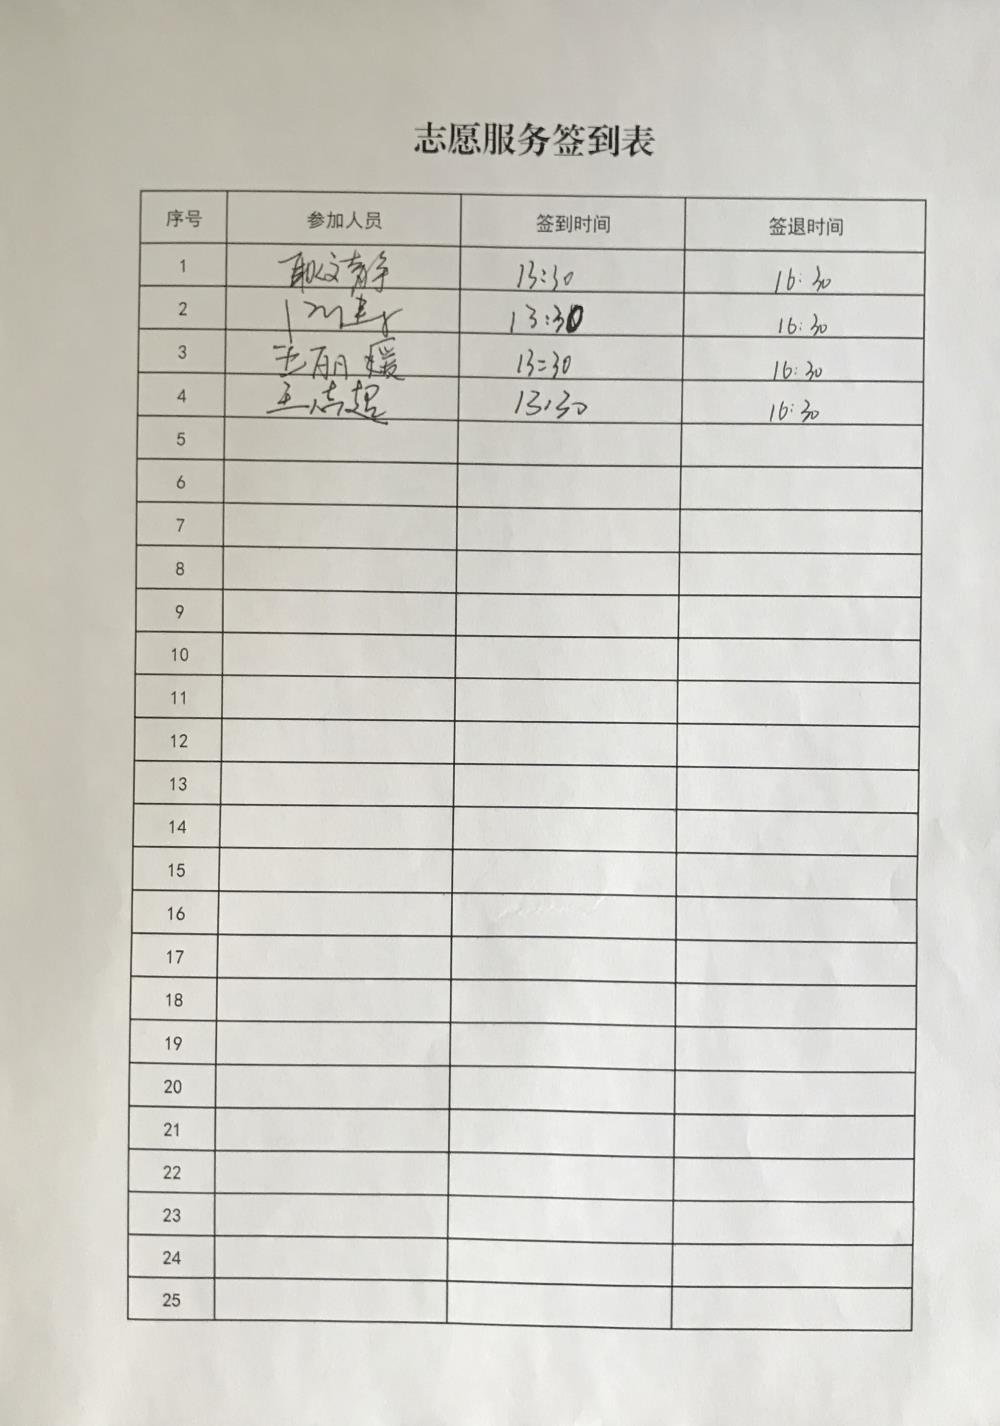 志愿服务签到表
序号 参加人员 签到时间 签退时间
1 耿文静 13:30 16:30
2 13:30 16:30
3 王丽媛 13:30 16:30
4 王志超 13:30 16:30
5
6
7
8
9
10
11
12
13
14
15
16
17
18
19
20
21
22
23
24
25